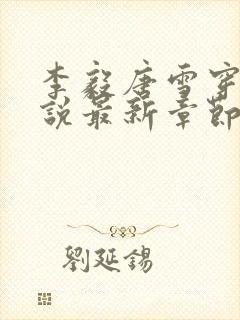 李毅唐雪穿
說最新章節
劉延錫